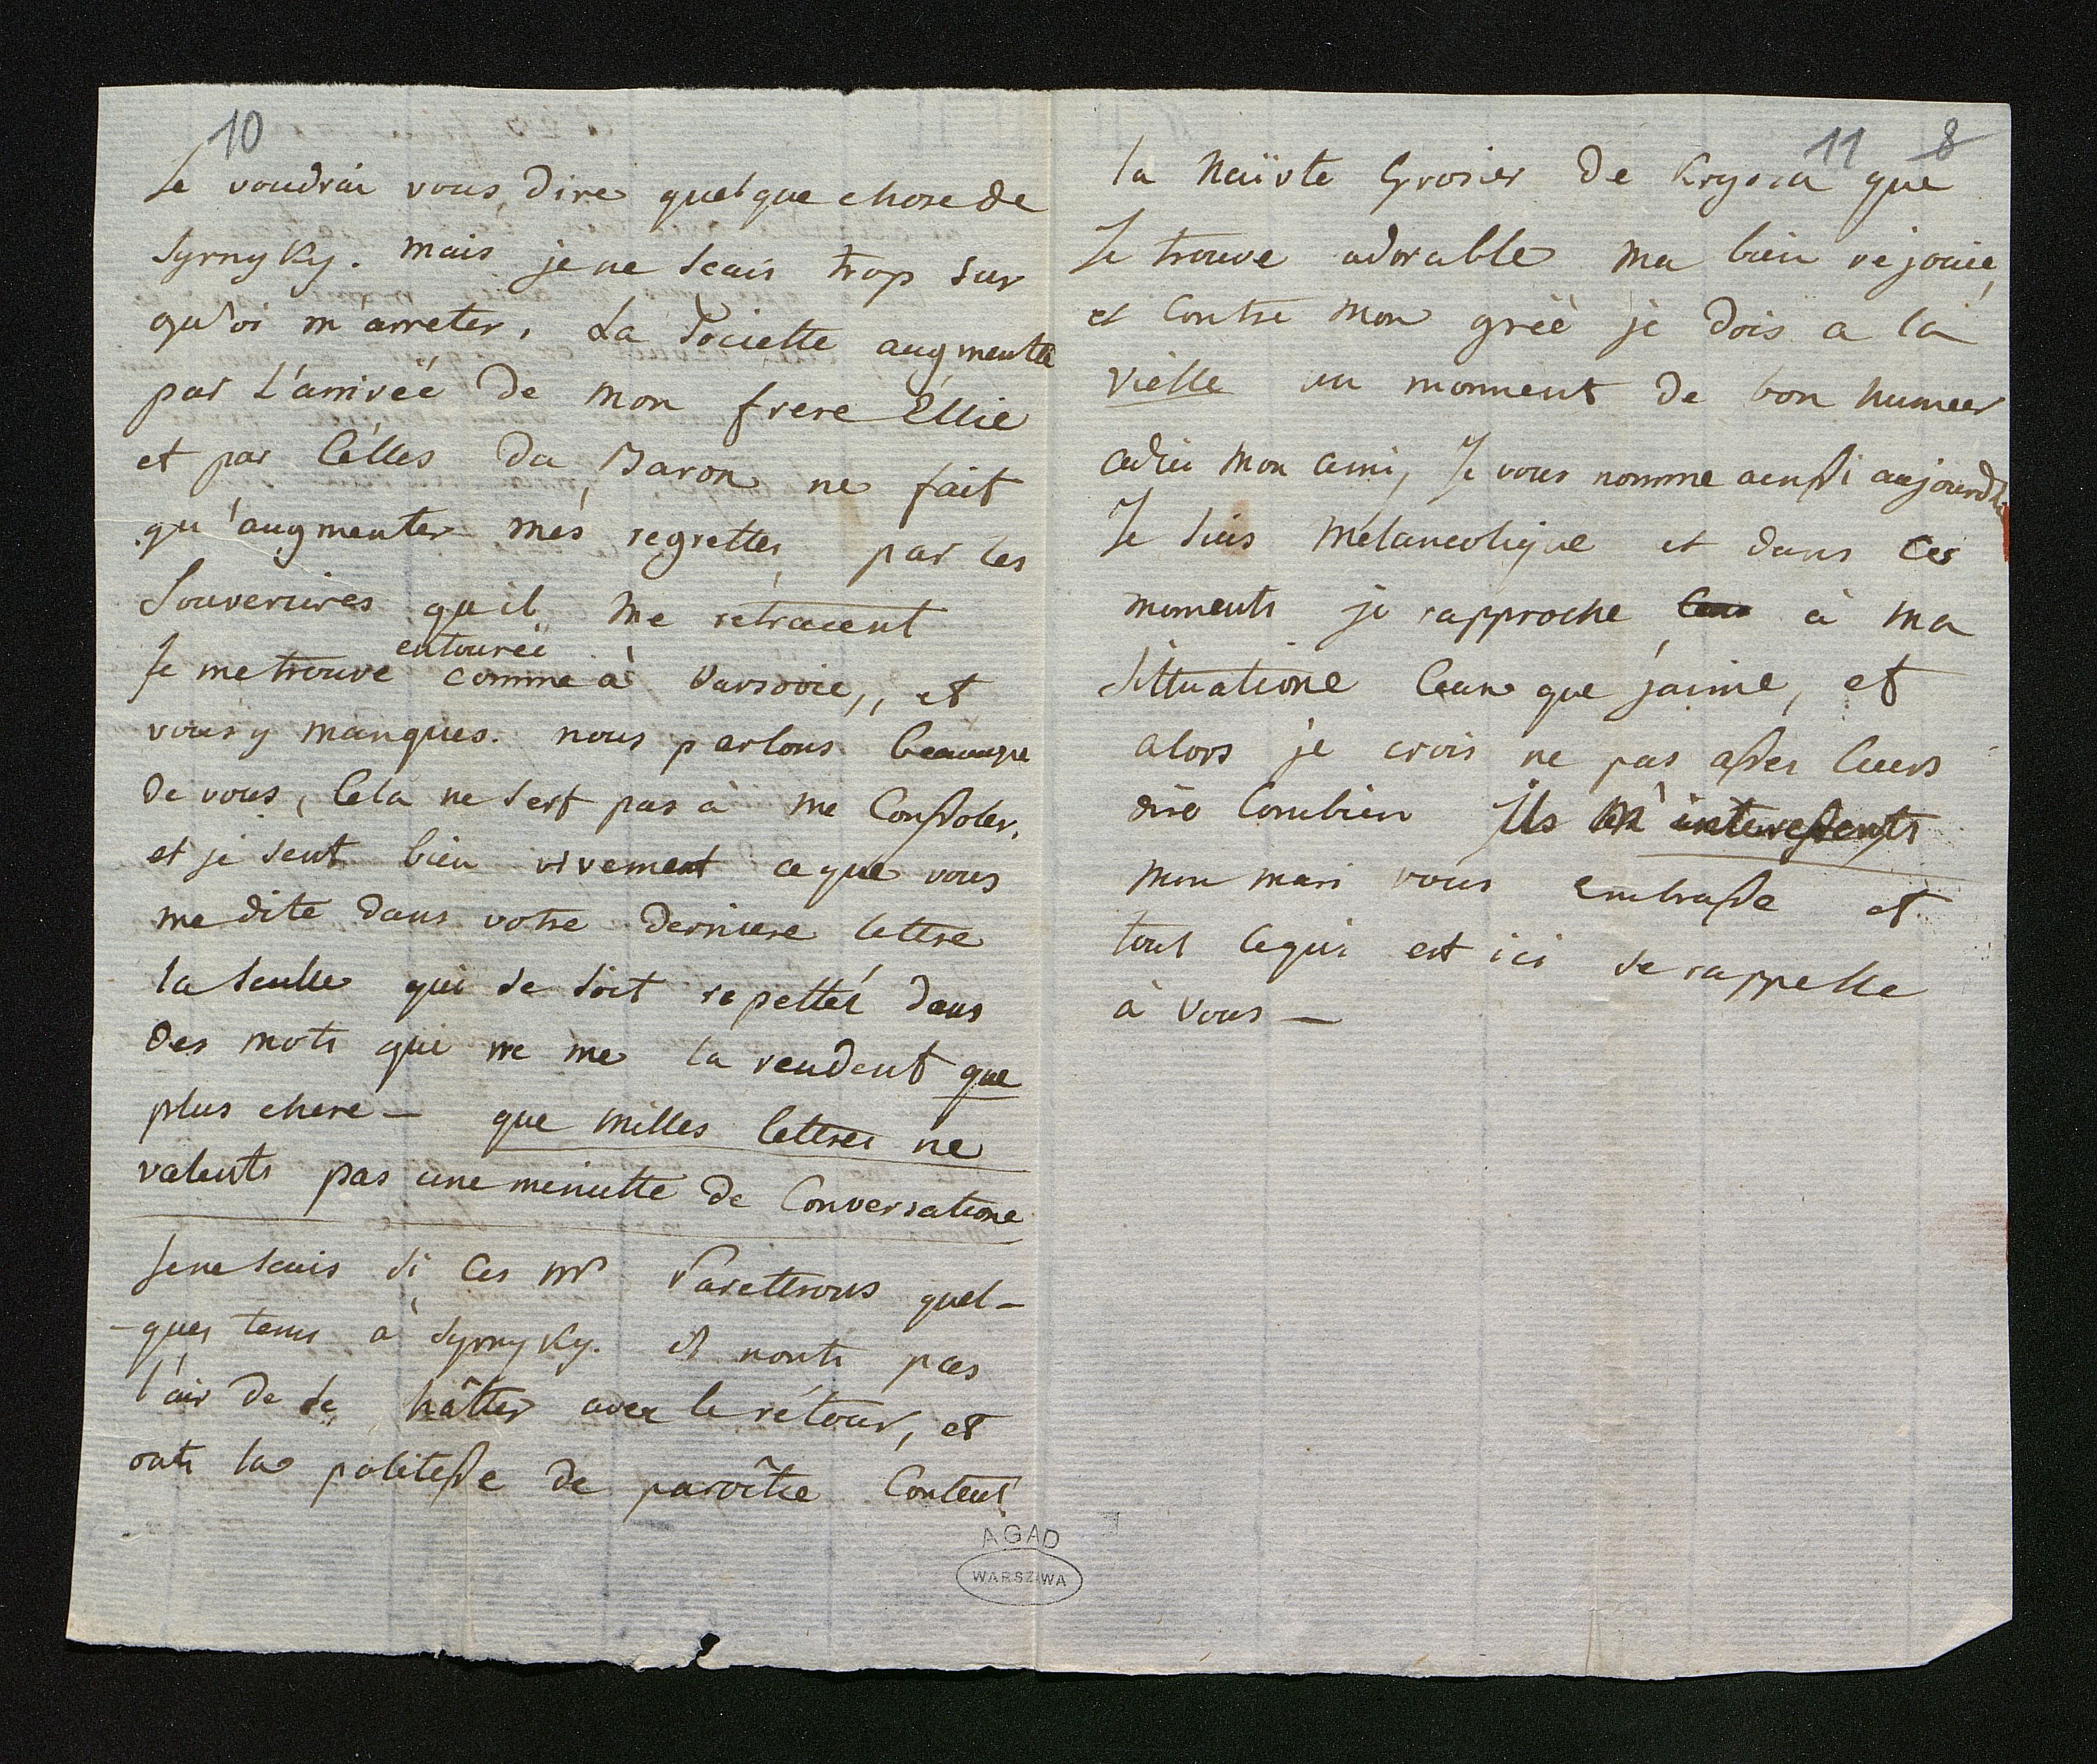 10
Je voudrai vous dire quelque chose de
Syrnyky. mais je ne scais trop sur
qu'oi m'arreter, La Societte augmentée
par L'arrivéé de mon frere Ellie
et par Célles du Baron ne fait
qu'augmenter més regrettes, par les
Souvenires qu'il me retracent
entouréé
Je me trouve comme à Varsovie,, et
vous y manques. nous parlons beaucupe
de vous, Cela ne sert pas à me Consoler,
et je sent bien vivement ce que vous
me dite dans votre derniere lettre
la seulle qui se soit repettér dans
des mots qui ne me la rendent que
plus chere — que milles lettres ne
valents pas une minutte de Conversatione
Je ne scais si Ces Mrs resterons quel-
-ques tems à Syrnyky. il nonts pas
l'air de se hâtter avec le rétour, et
onts la politesse de paroître Content
AGAD
WARSZAWA
11 8
la Naïvte Grosier de Krysia que
Je trouve adorable ma bien réjouie,
et Contre mon gréé je dois a la
Vielle un momment de bon humeer
adieu mon ami, Je vous nomme ainssi aujourdhui
Je suis mélancolique et dans ces
moments je rapproche à ma
Sittuatione Ceux que j'aime, et
alors je crois ne pas asses leurs
dire Combien Ils M'interessents
mon mari vous embrasse et
tout Cequi est ici se rappelle
à Vous —